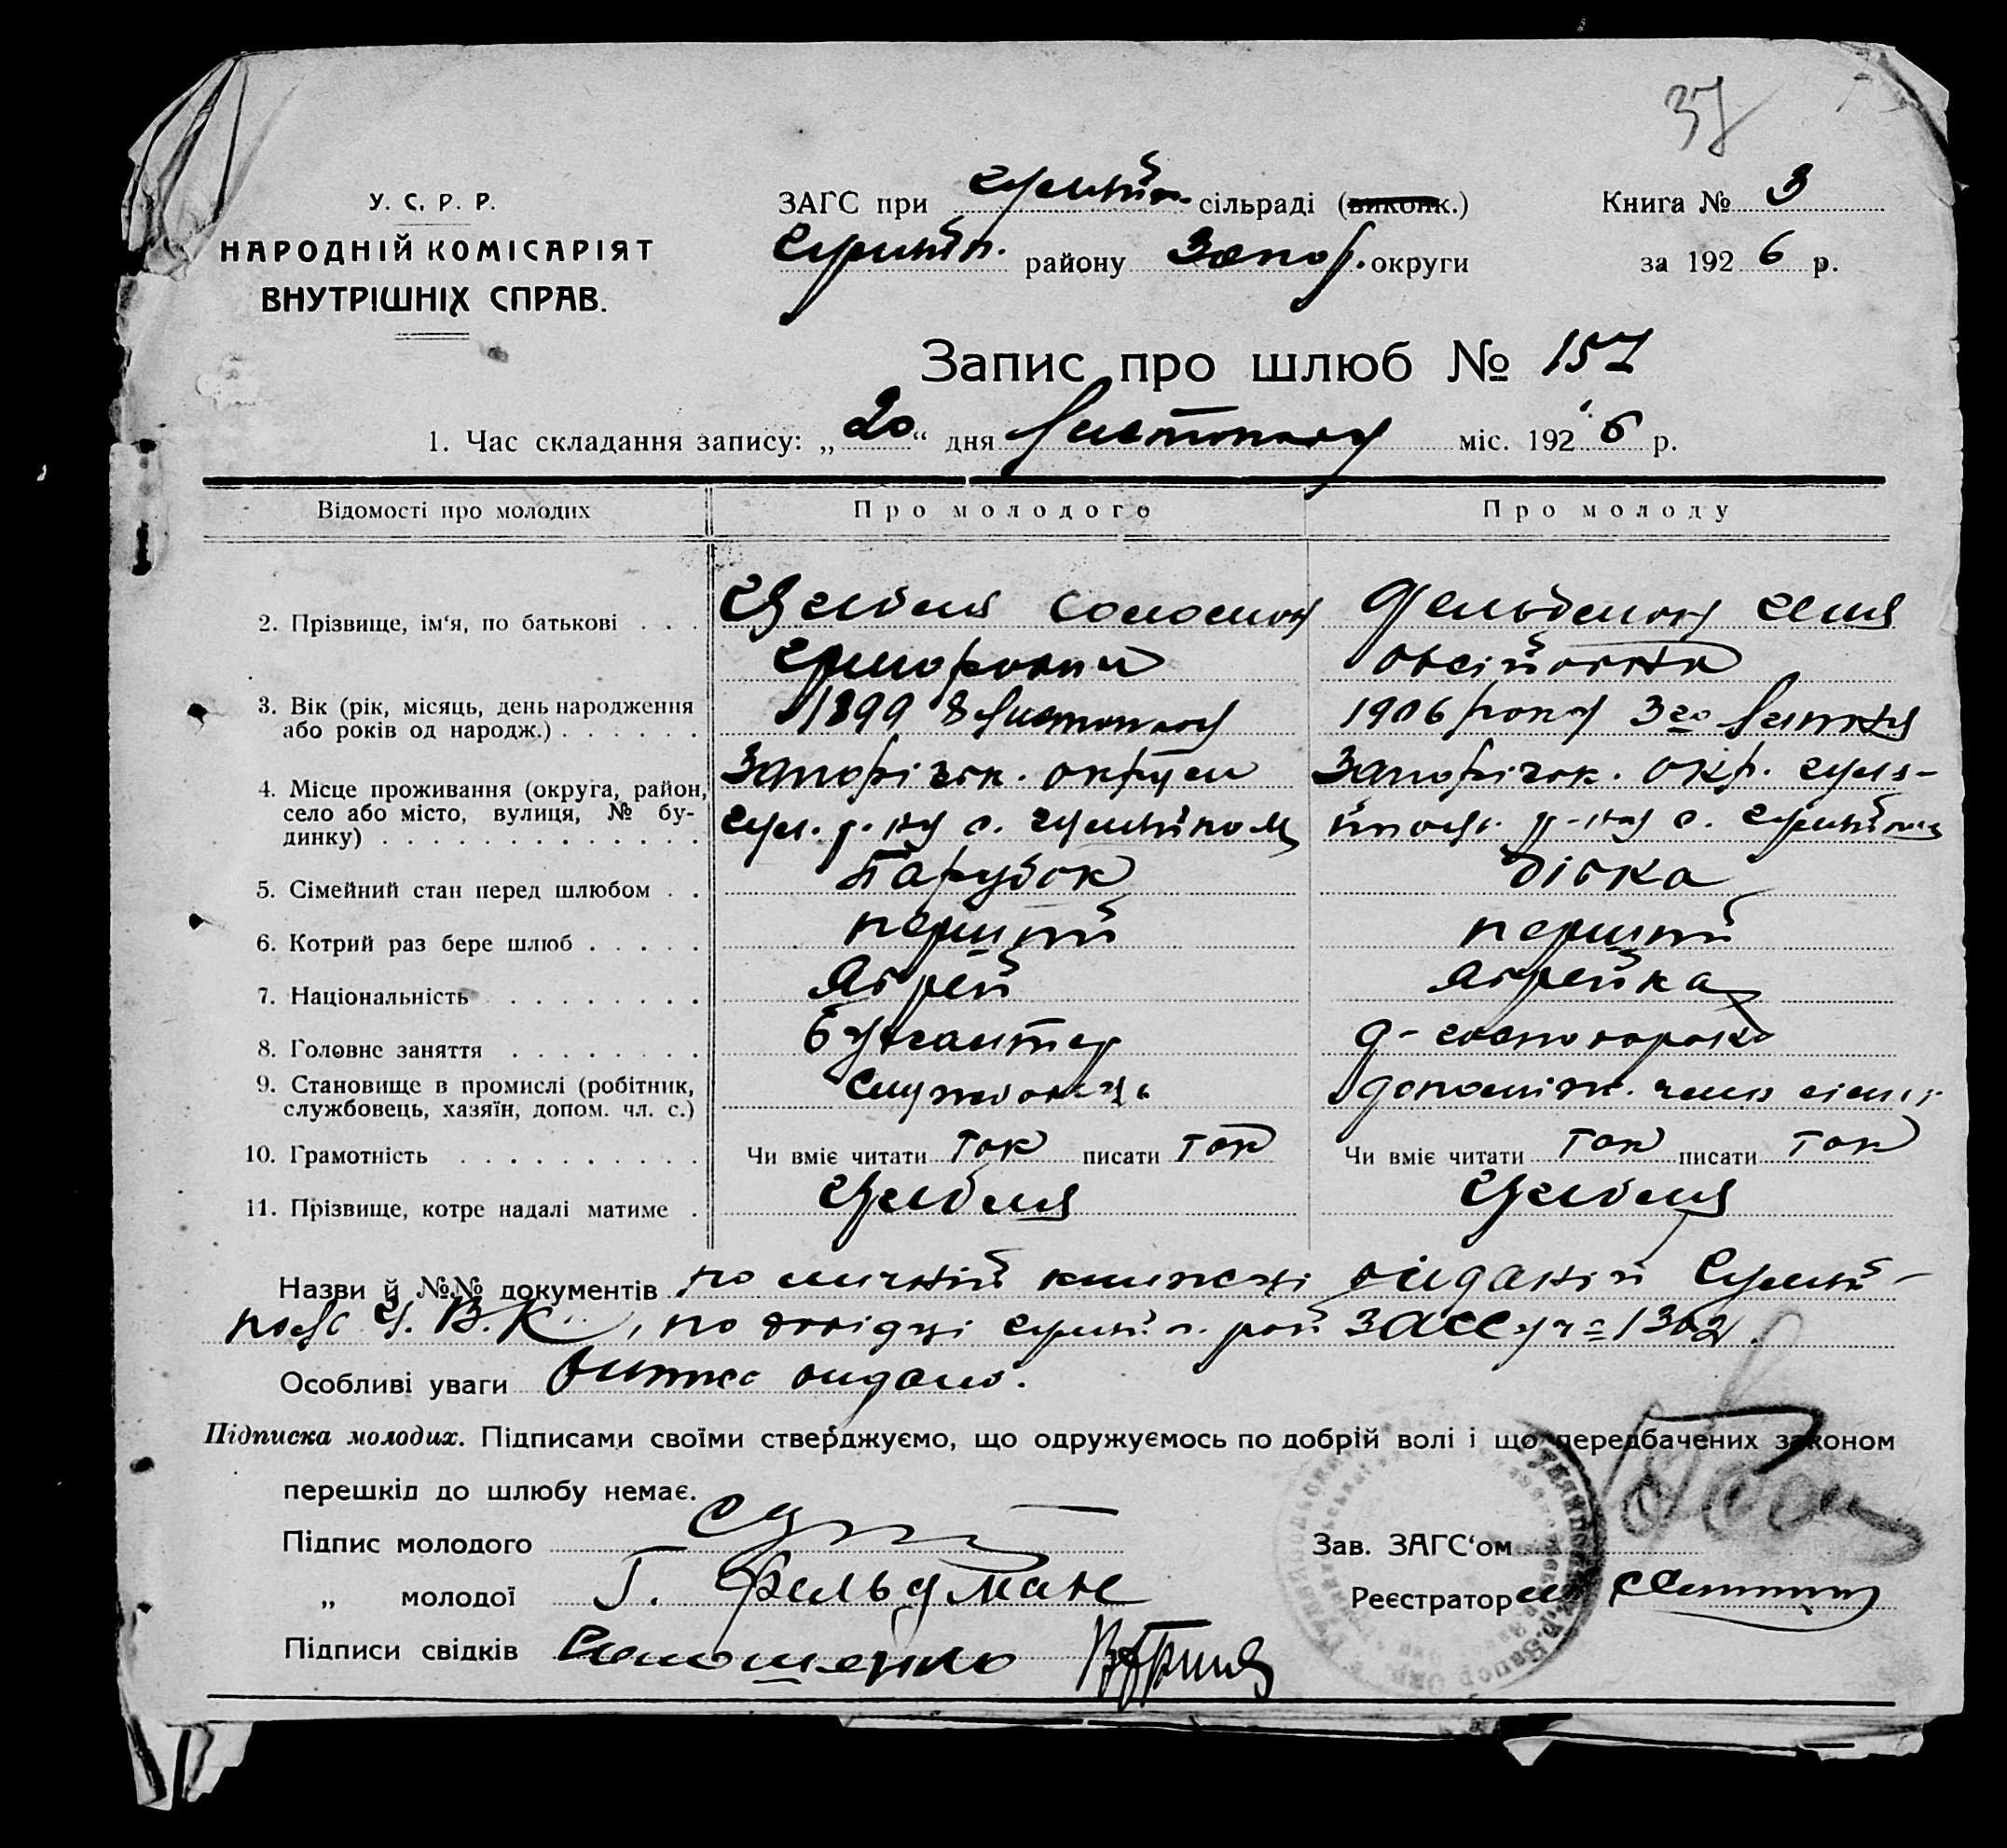 37
У. С. Р. Р.
НАРОДНІЙ КОМІСАРІЯТ
ВНУТРІШНІХ СПРАВ.
ЗАГС при Гуляйп. сільраді (виконк.)
Гуляйп. району Запор. округи
Книга № 3
за 1926 р.
Запис про шлюб № 157
1. Час складання запису: „20“ дня Листопаду міс. 1926 р.
Відомості про молодих
Про молодого
Про молоду
2. Прізвище, ім‘я, по батькові . . . Соломон Фельдман
3. Вік (рік, місяць, день народження 1899 8 Листопаду 1906 року 3го Липня
або років од народж.) . . . . . .
4. Місце проживання (округа, район, Запоріжск. округи Запоріжск. окр. Гуля-
село або місто, вулиця, № бу- Гул. р-ну с. Гуляйполе йпольс. р-ну с. Гуляйполе
динку) . . . . . . . . . . . . .
5. Сімейний стан перед шлюбом . . Парубок дівка
6. Котрий раз бере шлюб . . . . . перший перший
7. Національність . . . . . . . . Єврей Єврейка
8. Головне заняття . . . . . . . . Бухгалтер д-господарка
9. Становище в промислі (робітник, Службовець допоміж. член сімї
службовець, хазяїн, допом. чл. с.)
10. Грамотність . . . . . . . . . . Чи вміє читати так писати так Чи вміє читати так писати так
11. Прізвище, котре надалі матиме .
Назви й №№ документів по книжці виданій Гуляй-
польс Р.В.К., по довідці Гуляйп. рай ЗАГСу № 1302.
Особливі уваги Витяг видано.
Підписка молодих. Підписами своїми стверджуємо, що одружуємось по добрій волі і що передбачених законом
перешкід до шлюбу немає.
Підпис молодого
„ молодої Г. Фельдман
Підписи свідків
Зав. ЗАГС‘ом
Реєстратор